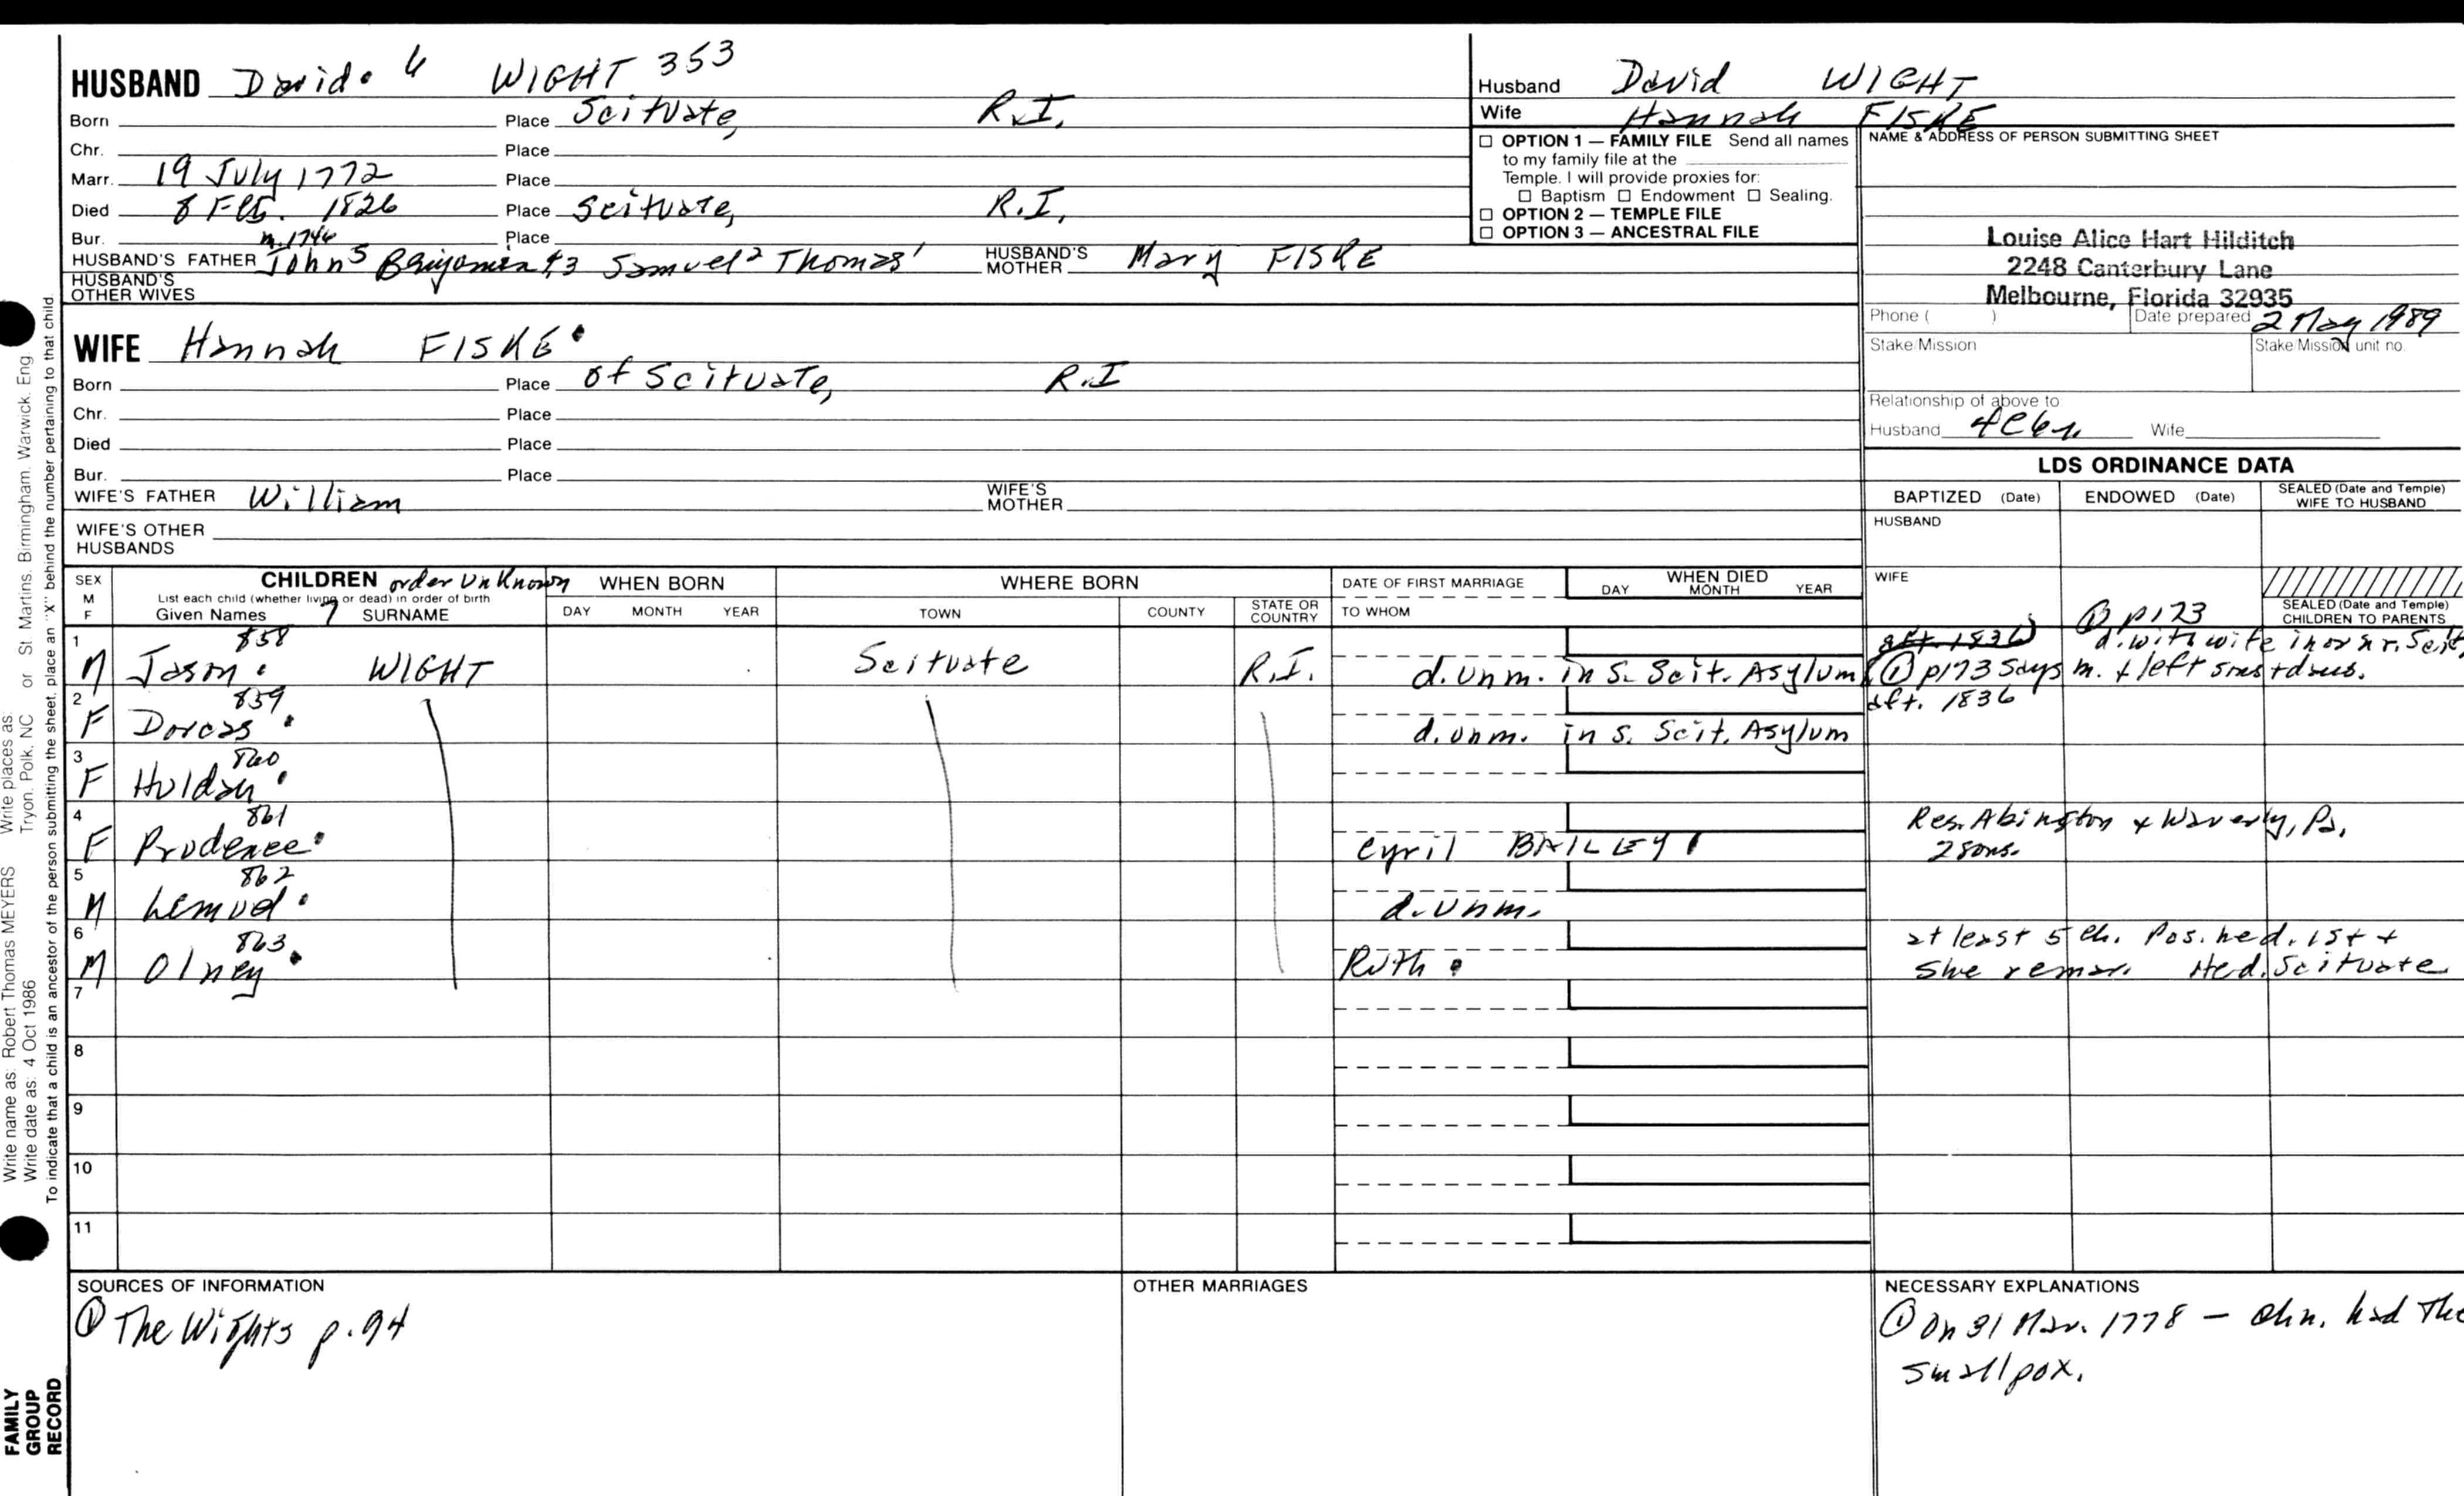 HUSBAND David 6 WIGHT 353
Born Place Scituate, R.I.
Chr. Place
Marr. 19 July 1772 Place
Died 8 Feb. 1826 Place Scituate, R.I.
Bur. Place
m. 1746
HUSBAND'S FATHER John 5 Benjamin 4,3 Samuel 2 Thomas 1 HUSBAND'S MOTHER Mary FISKE
HUSBAND'S OTHER WIVES
WIFE Hannah FISKE
Born Place of Scituate, R.I
Chr. Place
Died Place
Bur. Place
WIFE'S FATHER William WIFE'S MOTHER
WIFE'S OTHER HUSBANDS
Husband David WIGHT
Wife Hannah FISKE
☐ OPTION 1 — FAMILY FILE Send all names
to my family file at the
Temple. I will provide proxies for:
☐ Baptism ☐ Endowment ☐ Sealing.
☐ OPTION 2 — TEMPLE FILE
☐ OPTION 3 — ANCESTRAL FILE
NAME & ADDRESS OF PERSON SUBMITTING SHEET
Louise Alice Hart Hilditch
2248 Canterbury Lane
Melbourne, Florida 32935
Phone ( ) Date prepared 2 May 1989
Stake/Mission Stake/Mission unit no.
Relationship of above to
Husband 4C6r Wife
LDS ORDINANCE DATA
BAPTIZED (Date) ENDOWED (Date) SEALED (Date and Temple) WIFE TO HUSBAND
HUSBAND
WIFE
SEALED (Date and Temple) CHILDREN TO PARENTS
SEX M F CHILDREN order Unknown WHEN BORN WHERE BORN DATE OF FIRST MARRIAGE WHEN DIED
List each child (whether living or dead) in order of birth
Given Names 7 SURNAME DAY MONTH YEAR TOWN COUNTY STATE OR COUNTRY TO WHOM DAY MONTH YEAR
① p173
858 aft. 1836 d. with wife in or nr. Scit.
1 M Jason WIGHT Scituate R.I. d. unm. in S. Scit. Asylum ① p173 says m. & left sons + daus.
859 aft. 1836
2 F Dorcas d. unm. in S. Scit. Asylum
860
3 F Huldah
861 Res. Abington & Waverly, Pa.
4 F Prudence Cyril BAILEY 2 sons.
862
5 M Lemuel d. unm.
863 at least 5 ch. Pos. he d. 1st +
6 M Olney Ruth she remar. He d. Scituate
7
8
9
10
11
SOURCES OF INFORMATION
① The Wights p. 94
OTHER MARRIAGES
NECESSARY EXPLANATIONS
① On 31 Mar. 1778 — chn. had the
smallpox.
Write name as: Robert Thomas MEYERS Write places as: Tryon, Polk, NC or St Martins, Birmingham, Warwick, Eng
Write date as: 4 Oct 1986
To indicate that a child is an ancestor of the person submitting the sheet, place an "X" behind the number pertaining to that child.
FAMILY
GROUP
RECORD